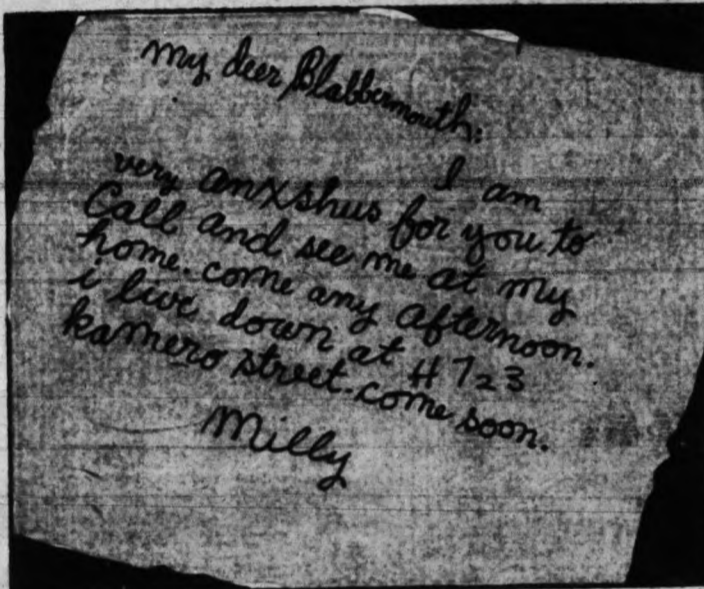 my deer Blabbermouth:
I am
very anxshus for you to
Call and see me at my
home. come any afternoon.
i live down at # 723
kamero street. come soon.
Milly